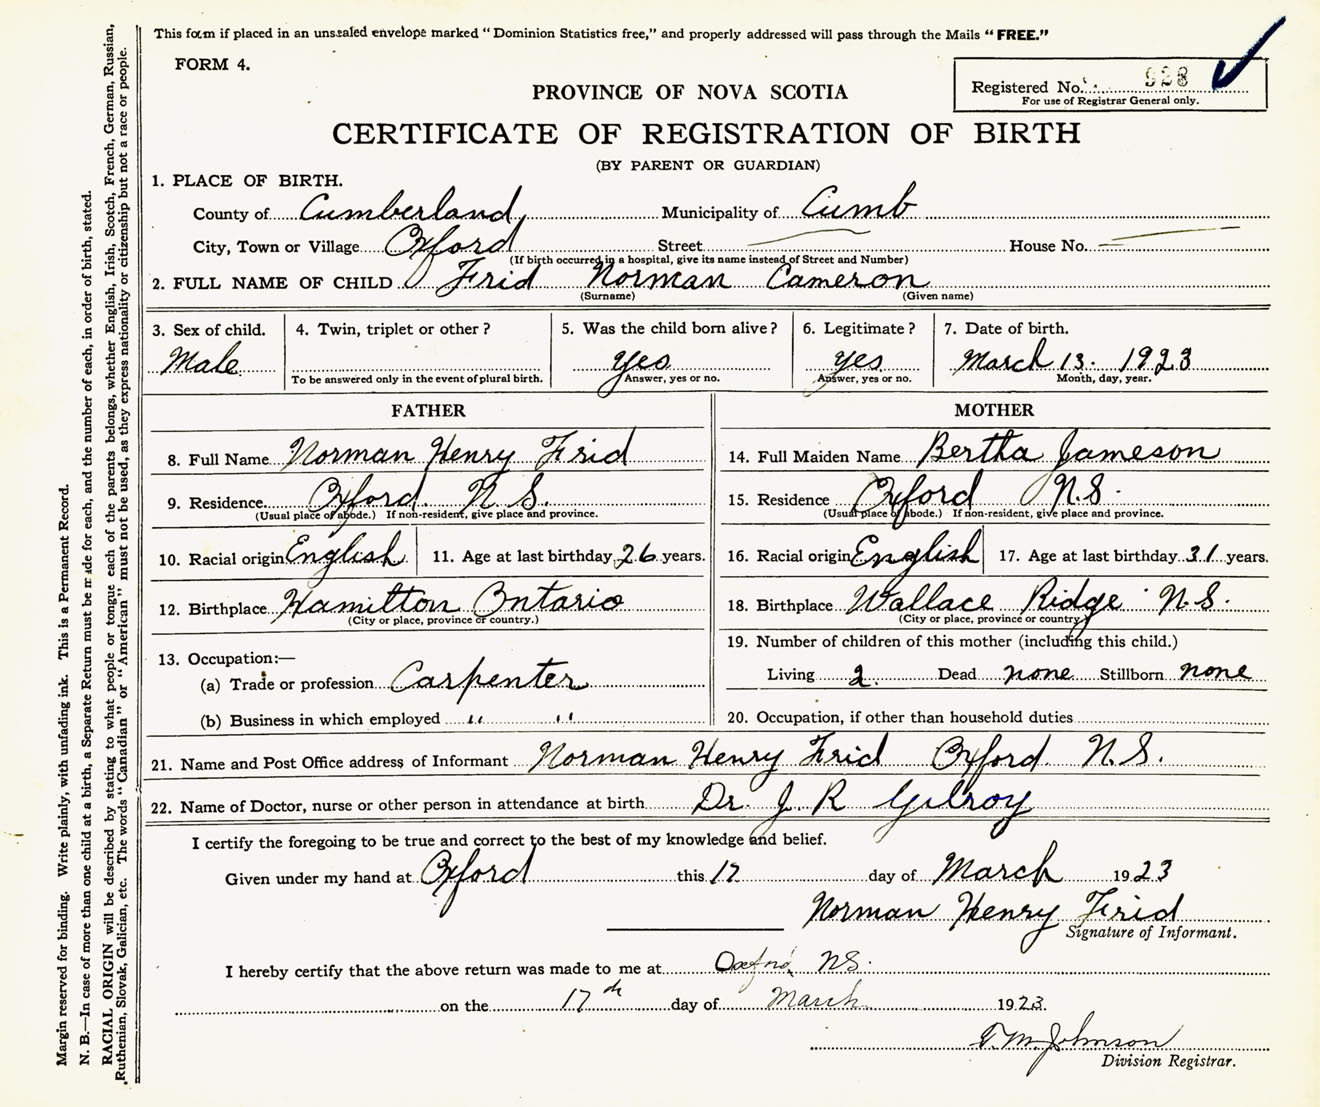 This form if placed in an unsealed envelope marked "Dominion Statistics free," and properly addressed will pass through the Mails "FREE."
FORM 4.
Registered No. 928
For use of Registrar General only.
PROVINCE OF NOVA SCOTIA
CERTIFICATE OF REGISTRATION OF BIRTH
(BY PARENT OR GUARDIAN)
1. PLACE OF BIRTH.
County of Cumberland, Municipality of Cumb
City, Town or Village Oxford Street House No.
(If birth occurred in a hospital, give its name instead of Street and Number)
2. FULL NAME OF CHILD Frid Norman Cameron
(Surname) (Given name)
3. Sex of child. 4. Twin, triplet or other? 5. Was the child born alive? 6. Legitimate? 7. Date of birth.
Male Yes Yes March 13. 1923
To be answered only in the event of plural birth. Answer, yes or no. Answer, yes or no. Month, day, year.
FATHER MOTHER
8. Full Name Norman Henry Frid 14. Full Maiden Name Bertha Jameson
9. Residence Oxford. N.S. 15. Residence Oxford N.S.
(Usual place of abode.) If non-resident, give place and province. (Usual place of abode.) If non-resident, give place and province.
10. Racial origin English 11. Age at last birthday 26 years. 16. Racial origin English 17. Age at last birthday 31 years.
12. Birthplace Hamilton Ontario 18. Birthplace Wallace Ridge N.S.
(City or place, province or country.) (City or place, province or country)
19. Number of children of this mother (including this child.)
13. Occupation:—
(a) Trade or profession Carpenter Living 2. Dead none Stillborn none
(b) Business in which employed " " 20. Occupation, if other than household duties
21. Name and Post Office address of Informant Norman Henry Frid Oxford N.S.
22. Name of Doctor, nurse or other person in attendance at birth Dr. J R Gilroy
I certify the foregoing to be true and correct to the best of my knowledge and belief.
Given under my hand at Oxford this 17 day of March 1923
Norman Henry Frid
Signature of Informant.
I hereby certify that the above return was made to me at Oxford NS.
on the 17th day of March 1923.
T. M. Johnson
Division Registrar.
Margin reserved for binding. Write plainly, with unfading ink. This is a Permanent Record.
N. B.—In case of more than one child at a birth, a Separate Return must be made for each, and the number of each, in order of birth, stated.
RACIAL ORIGIN will be described by stating to what people or tongue each of the parents belongs, whether English, Irish, Scotch, French, German, Russian,
Ruthenian, Slovak, Galician, etc. The words "Canadian" or "American" must not be used, as they express nationality or citizenship but not a race or people.